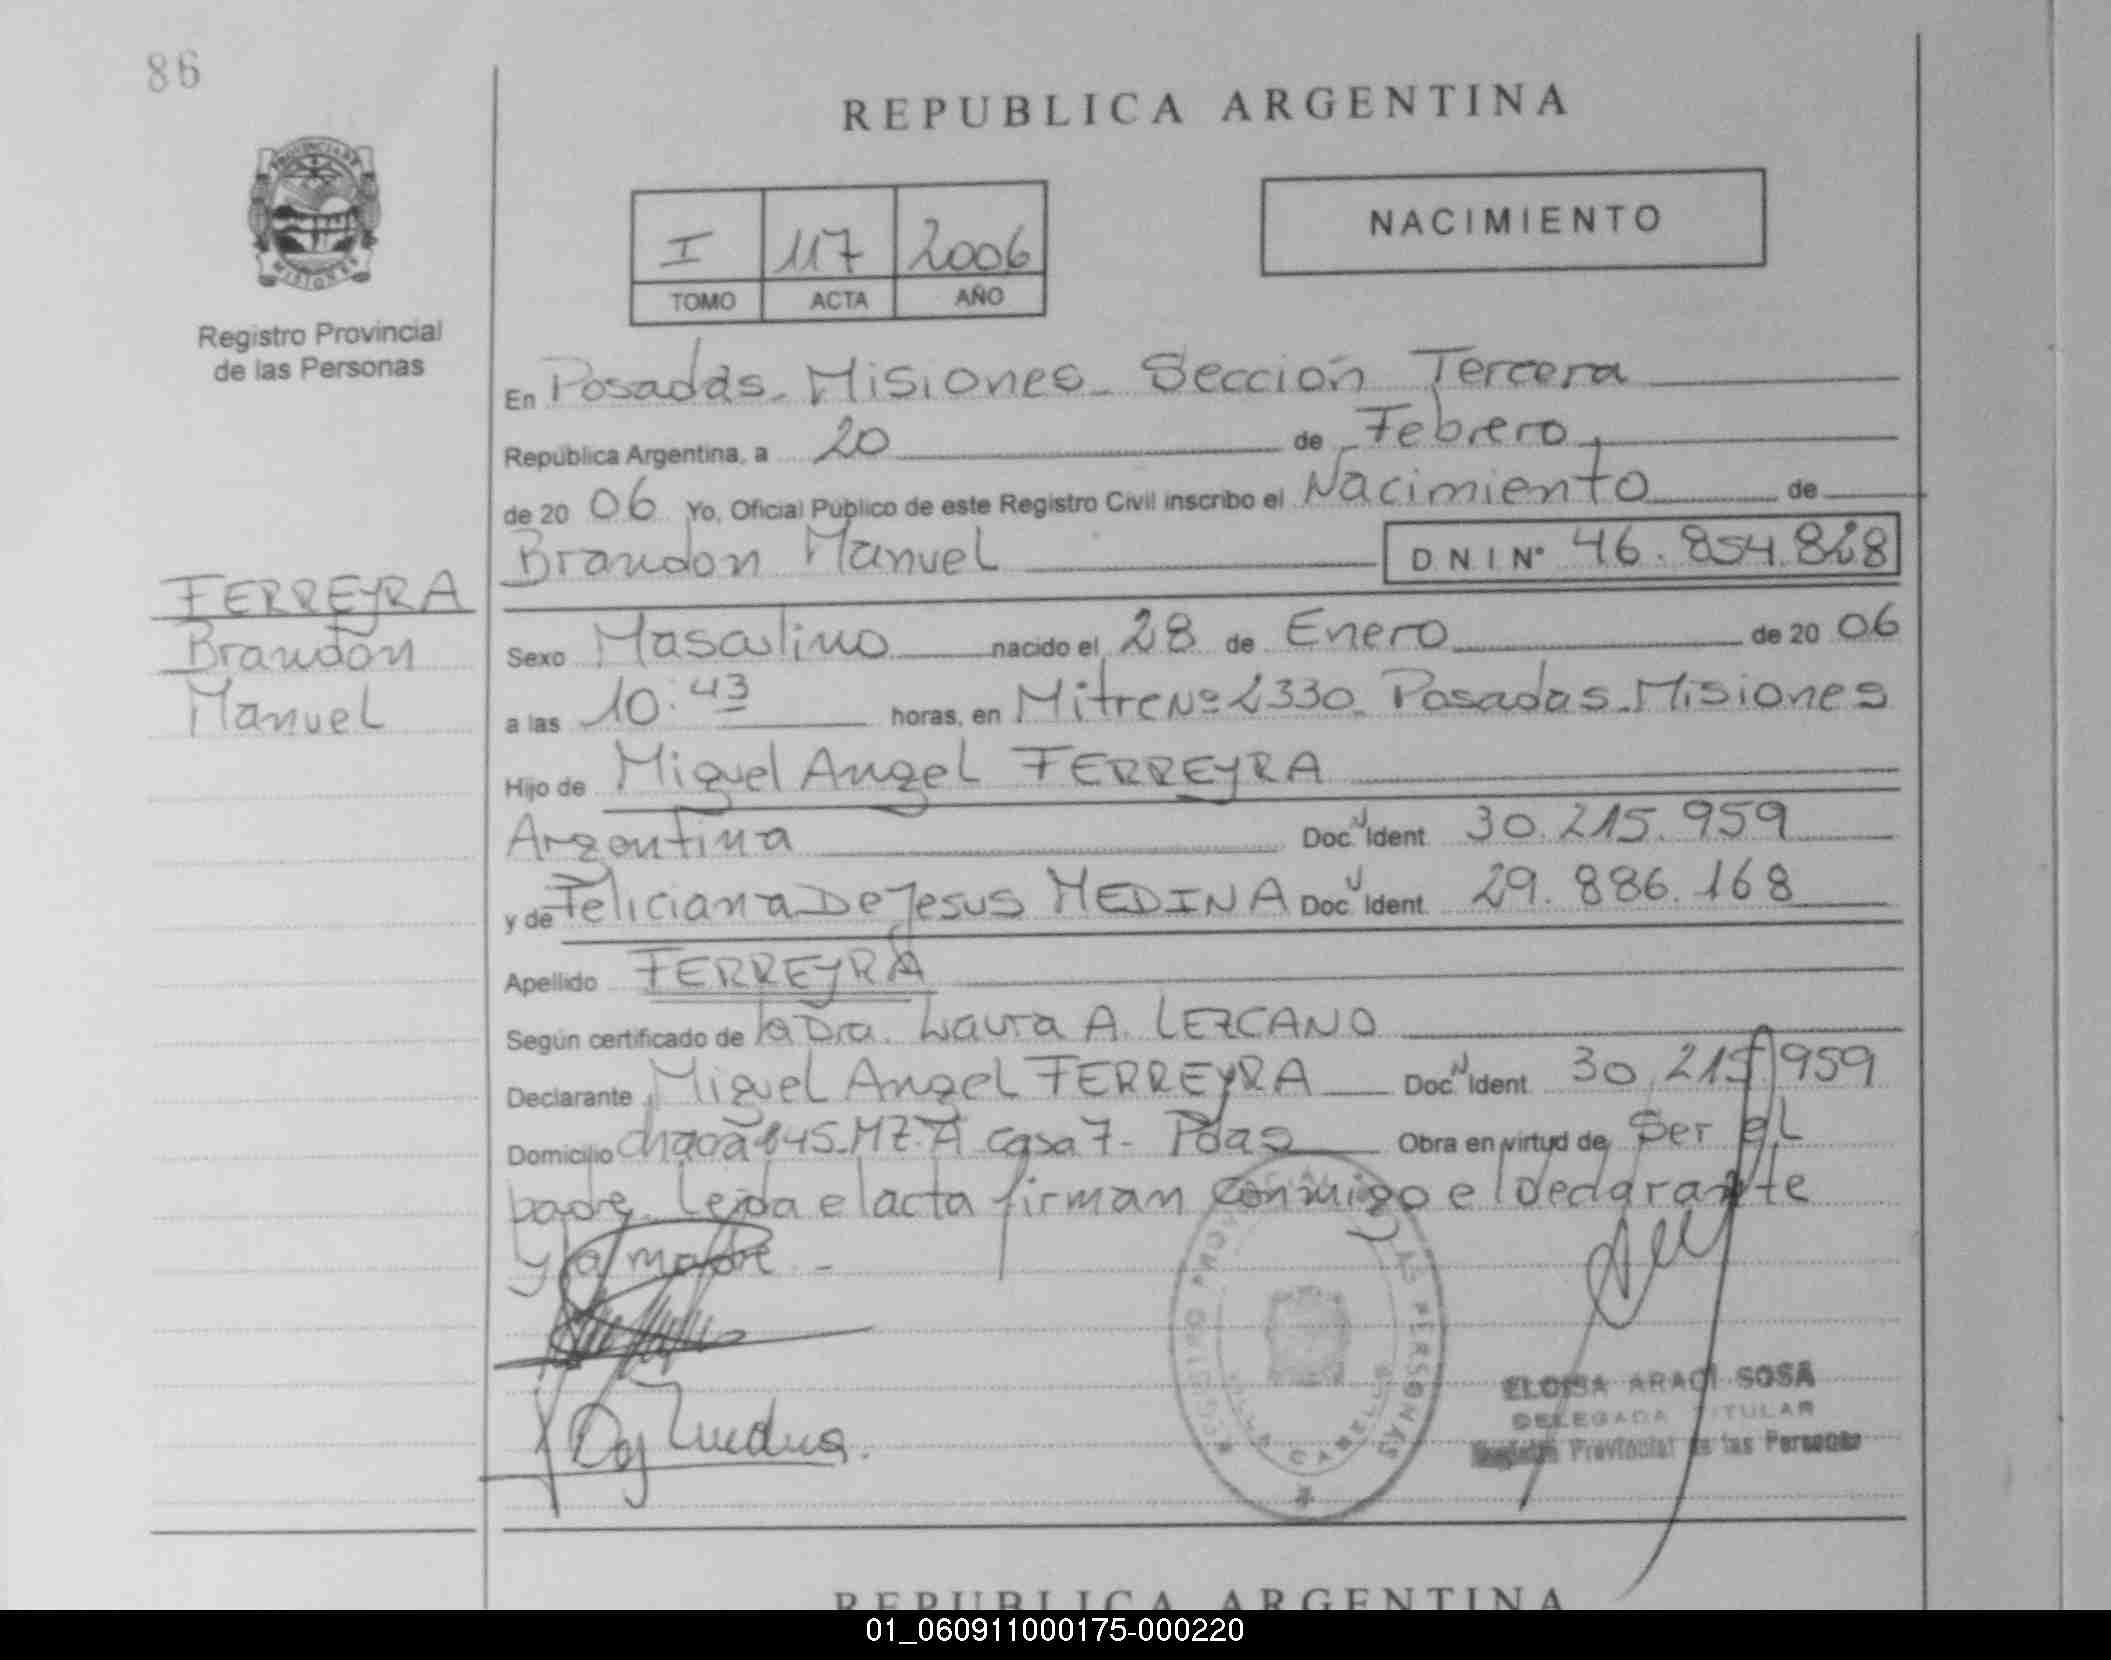 86
REPUBLICA ARGENTINA
PROVINCIA DE
MISIONES
Registro Provincial
de las Personas
I 117 2006
TOMO ACTA AÑO
NACIMIENTO
En Posadas - Misiones - Sección Tercera
República Argentina, a 20 de Febrero
de 20 06 Yo, Oficial Público de este Registro Civil inscribo el Nacimiento de
Brandon Manuel D N I Nº 46.854.828
FERREYRA
Brandon
Manuel
Sexo Masculino nacido el 28 de Enero de 20 06
a las 10:43 horas, en Mitre Nº 2330 - Posadas - Misiones
Hijo de Miguel Angel FERREYRA
Argentina Doc. Ident. 30.215.959
y de Feliciana De Jesus MEDINA Doc. Ident. 29.886.168
Apellido FERREYRA
Según certificado de la Dra. Laura A. LEZCANO
Declarante Miguel Angel FERREYRA Doc. Ident. 30.215.959
Domicilio chacra 145 - MZ. A casa 7 - Pdas Obra en virtud de Ser el
padre. Leida el acta firman conmigo el declarante
y la madre -
ELOISA ARACI SOSA
DELEGADA TITULAR
Registro Provincial de las Personas
REPUBLICA ARGENTINA
01_060911000175-000220